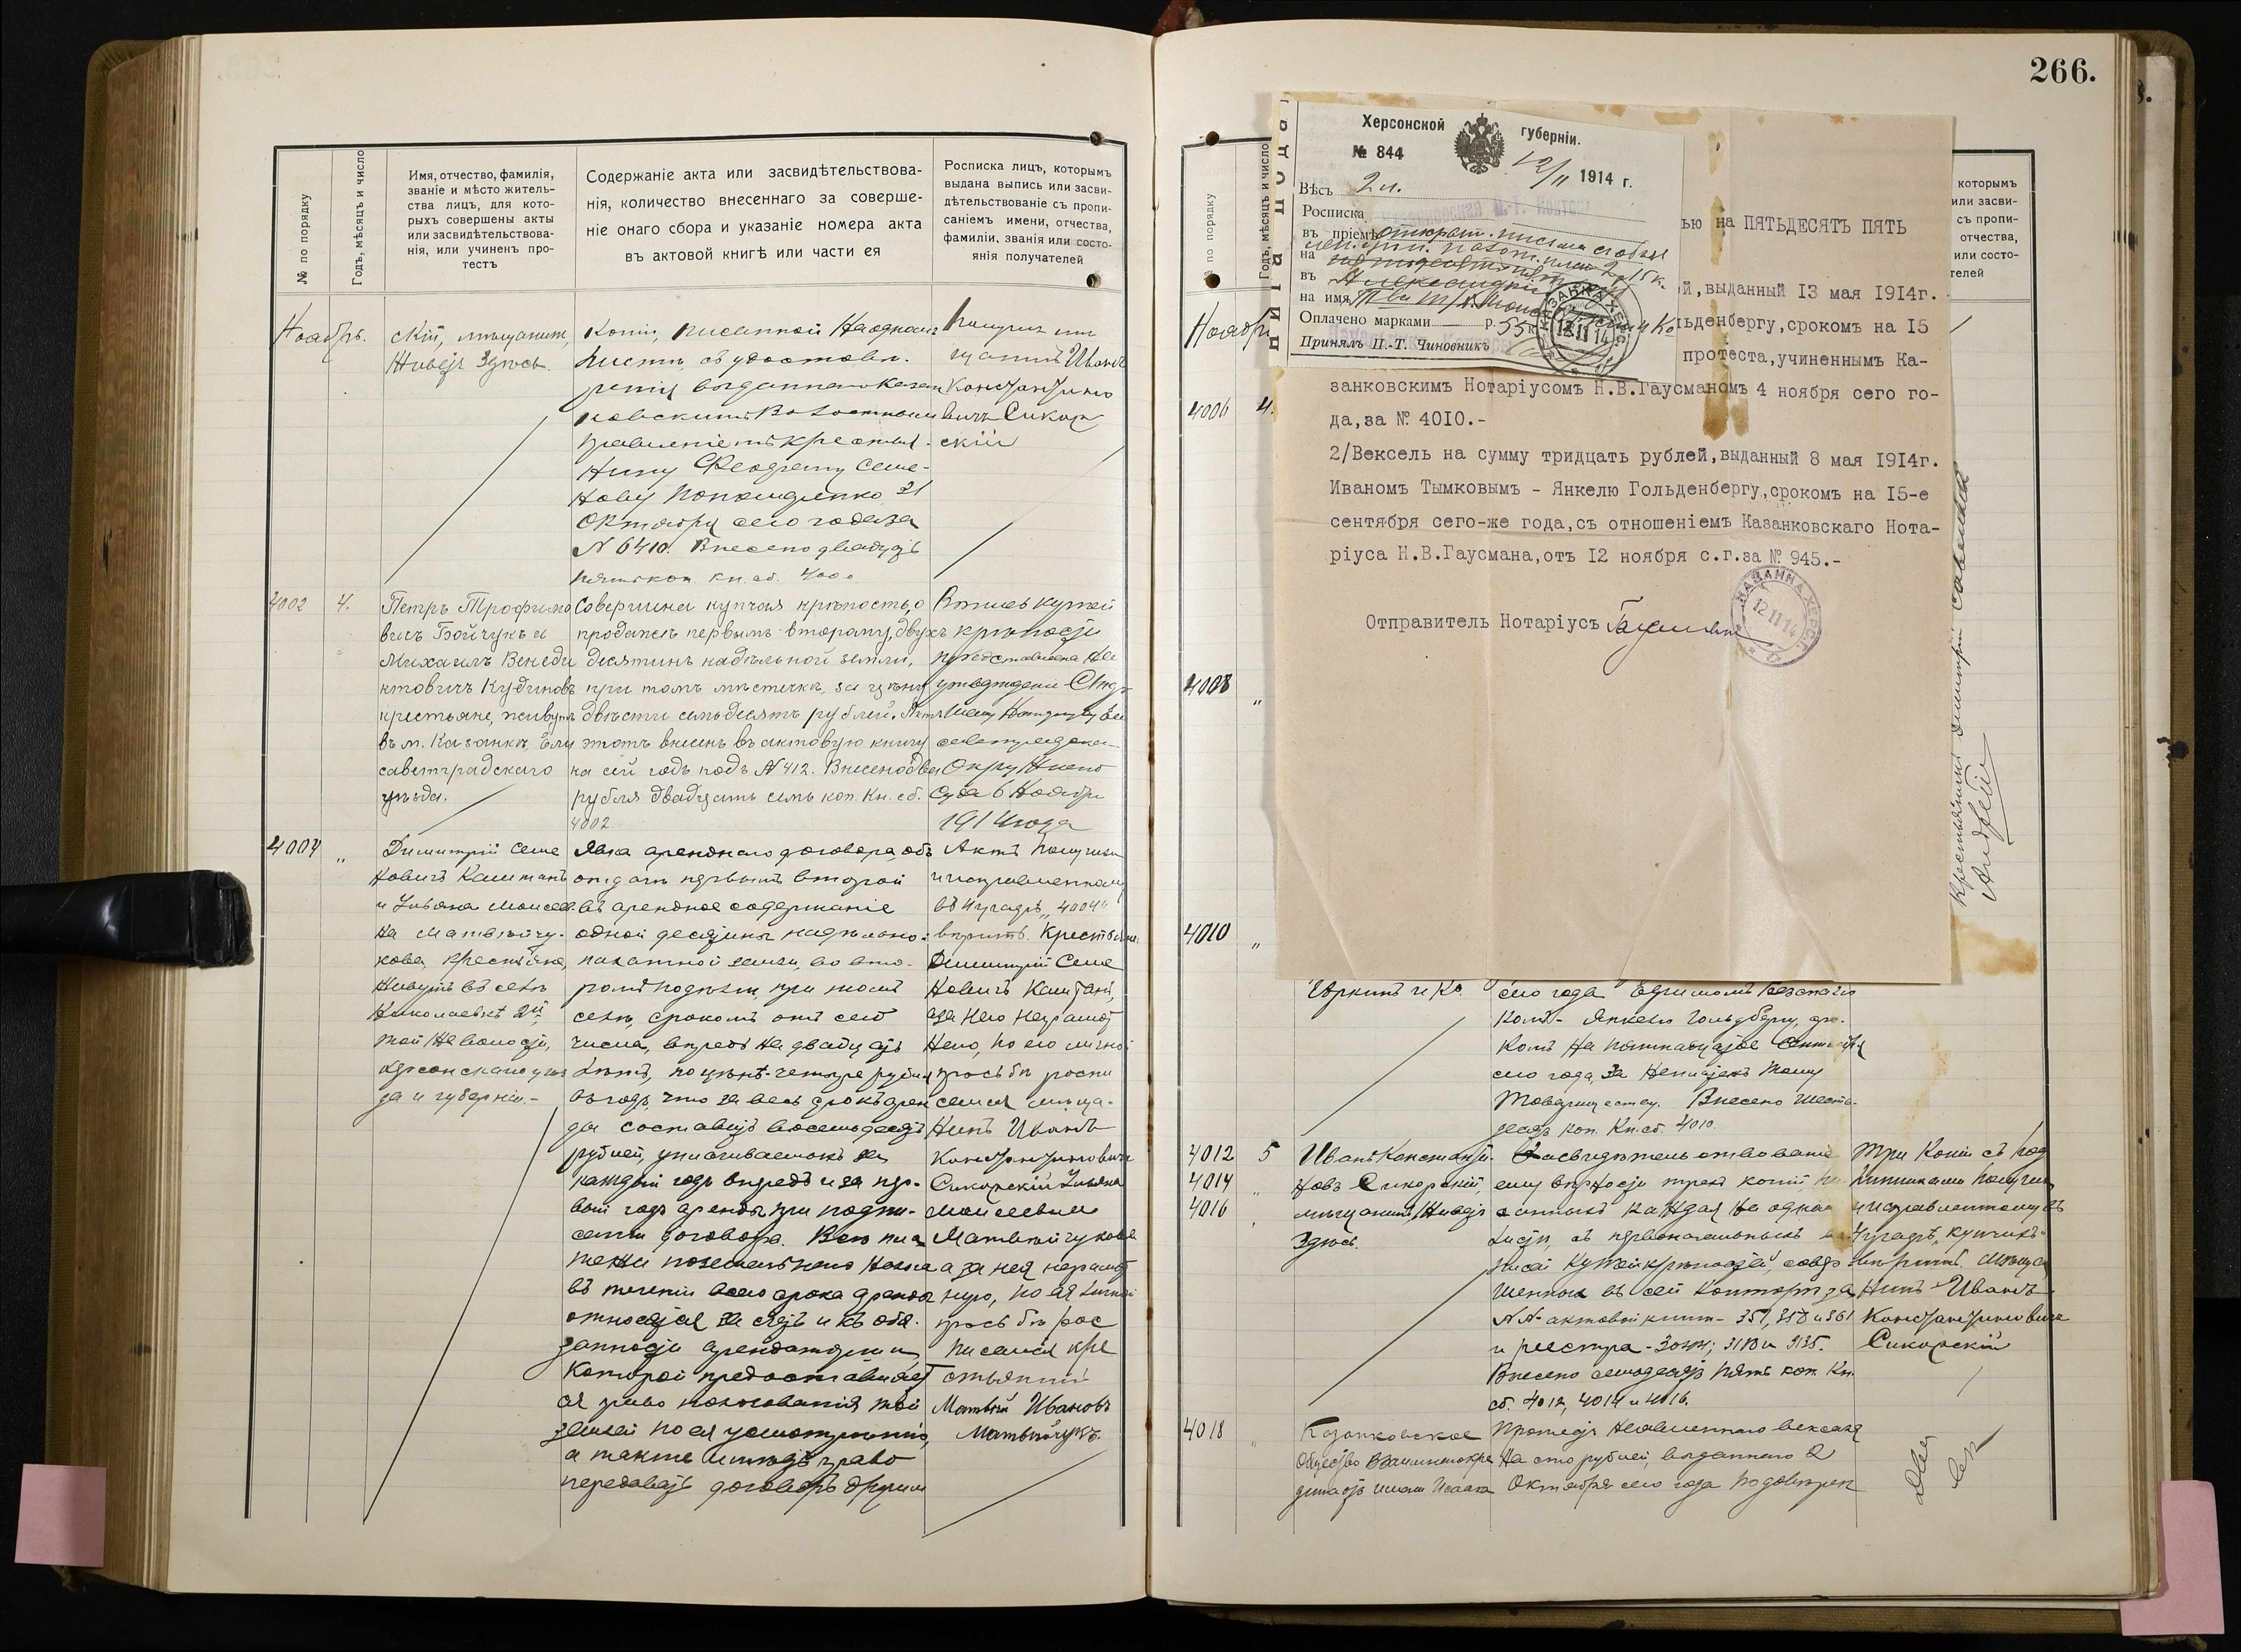 № по порядку
Годъ, мѣсяцъ и число
Имя, отчество, фамилія,
званіе и мѣсто житель-
ства лицъ, для кото-
рыхъ совершены акты
или засвидѣтельствова-
нія, или учиненъ про-
тестъ
Содержаніе акта или засвидѣтельствова-
нія, количество внесеннаго за соверше-
ніе онаго сбора и указаніе номера акта
въ актовой книгѣ или части ея
Росписка лицъ, которымъ
выдана выпись или засви-
дѣтельствованіе съ пропи-
саніемъ имени, отчества,
фамиліи, званія или состо-
янія получателей
Ноябрь.
скій, мѣщанинъ,
живетъ здѣсь.
Копіи, писанной на одномъ
листѣ, съ удостовѣ-
ренія выданнаго Казан
ковскимъ Волостнымъ
правленіемъ крестья-
нину Феодрению Семе-
нову 21
Октября сего года за
№ 6410. Внесено двадцать
пять коп. кн. сб. 4000
Константино
вичъ Сикор
скій
4002
4.
Петръ Трофимо
вичъ Бойчукъ и
Михаилъ Венеди
ктовичъ Кудиновъ
крестьяне, живутъ
въ м. Казанкѣ, Ели
саветградскаго
уѣзда.
Совершена купчая крѣпость, о
продажѣ первымъ второму, двухъ
десятинъ надѣльной земли,
при томъ мѣстечкѣ, за цѣну
двѣсти семьдесятъ рублей. Актъ
этотъ внесенъ въ актовую книгу
на сей годъ подъ № 412. Внесено два
рубля двадцать семь коп. Кн. сб.
4002
Выпись купчей
крѣпости
представлена на
утвержденіе Стар
шему Нотаріусу Ели
саветградскаго
Окружнаго
Суда 6 Ноября
1914 года
4004
"
Димитрій Семе
новичъ Каштанъ
и Ульяна Моисеев
на Матвѣйчу-
кова, крестьяне,
живутъ въ селѣ
Николаевкѣ 2й,
той же волости,
Херсонскаго уѣз
да и губерніи.-
Явка аренднаго договора, объ
отдачѣ первымъ второй
въ арендное содержаніе
одной десятины надѣльно-
пахатной земли, во вто-
ромъ подѣлѣ, при томъ
селѣ, срокомъ отъ сего
числа, впредь на двадцать
лѣтъ, по цѣнѣ четыре рубля
въ годъ, что за весь срокъ арен
ды составитъ восемьдесятъ
рублей, уплачиваемыхъ за
каждый годъ впредь и за пер-
вый годъ аренды при подпи-
саніи договора. Всѣ пла
тежи поземельнаго налога
въ теченіи всего срока аренды
относятся за счетъ и къ обя-
занности арендаторши,
которой предоставляет
ся право пользованія той
землей по ея усмотрѣнію,
а также имѣетъ право
передавать договоръ другим
Актъ получилъ
и исправленному
въ играфѣ „4004“
вѣрить. Крестьяни
Димитрій Семе
новичъ Каштанъ,
за него неграмот
наго, по его личной
просьбѣ роспи
сался мѣща-
нинъ Иванъ
Константиновичъ
Сикорскій Ульяна
Моисеевна
Матвѣйчукова
а за нея неграмот
ную, по ея личной
просьбѣ рос
писался кре
стьянинъ
Матвѣй Ивановъ
Матвѣйчукъ.
266.
по порядку
Годъ, мѣсяцъ и число
которымъ
или засви-
съ пропи-
отчества,
или состо-
телей
Херсонской губерніи.
№ 844
12/11 1914 г.
Вѣсъ 2 л.
Росписка
въ пріемѣ
на
въ
на имя
Оплачено марками р. 55 к.
Принялъ П.-Т. Чиновникъ
КАЗАНКА ХЕРС.
12 11 14
ью на ПЯТЬДЕСЯТЪ ПЯТЬ
й,выданный 13 мая 1914г.
льденбергу,срокомъ на 15
протеста,учиненнымъ Ка-
занковскимъ Нотаріусомъ Н.В.Гаусманомъ 4 ноября сего го-
да,за № 4010.-
2/Вексель на сумму тридцать рублей,выданный 8 мая 1914г.
Иваномъ Тымковымъ - Янкелю Гольденбергу,срокомъ на 15-е
сентября сего-же года,съ отношеніемъ Казанковскаго Нота-
ріуса Н.В.Гаусмана,отъ 12 ноября с.г.за № 945.-
Отправитель Нотаріусъ Гаусманъ
КАЗАНКА ХЕРС.
12 11 14
Ноябрь
4006
4.
4008
"
4010
"
и Ко.
сего года Ефимомъ
комъ - Янкелю Гольдбергу, сро-
комъ на пятнадцатое Сентября
сего года, за неплатежъ тому
Товариществу. Внесено шесть-
десятъ коп. Кн. сб. 4010.
4012
5
4014
4016
Иванъ Константи-
новъ Сикорскій,
мѣщанинъ, живетъ
здѣсь.
Засвидѣтельствованіе
ему вѣрности трехъ копій, пи
санныхъ каждая на одномъ
листѣ, съ первоначальныхъ вы
писей купчихъ крѣпостей, совер
шенныхъ въ сей Конторѣ за
№№ актовой книги - 357, 358 и 361
и реестра - 3044; 3118 и 3135.
Внесено семьдесятъ пять коп. Кн.
сб. 4012, 4014 и 4016.
Три Копіи съ под
линниками получилъ
и исправленному въ
играфѣ „купчихъ“
вѣрить. Мѣща
нинъ Иванъ
Константиновичъ
Сикорскій
4018
"
Казанковское
Общество Взаимнаго кре
дита отъ имени Исаака
Протестъ неявленнаго векселя
на сто рублей, выданнаго 2
Октября сего года
Крестьянинъ Димитрій Савельевъ
Андрей